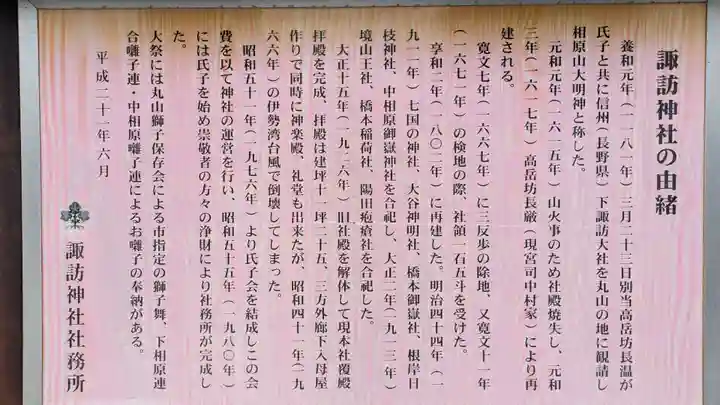 諏訪神社の由緒
養和元年(一一八一年)三月二十三日別当高岳坊長温が
氏子と共に信州(長野県)下諏訪大社を丸山の地に観請し
相原山大明神と称した。
元和元年(一六一五年)山火事のため社殿焼失し、元和
三年(一六一七年)高岳坊長厳(現宮司中村家)により再
建される。
寛文七年(一六六七年)に三反歩の除地、又寛文十一年
(一六七一年)の検地の際、社領一石五斗を受けた。
享和二年(一八〇二年)に再建した。明治四十四年(一
九一一年)七国の神社、大谷神明社、橋本御嶽社、根岸日
枝神社、中相原御嶽神社を合祀し、大正二年(一九一三年)
境山王社、橋本稲荷社、陽田疱瘡社を合祀した。
大正十五年(一九二六年)旧社殿を解体して現本社覆殿
拝殿を完成、拝殿は建坪十一坪二十五、三方外廊下入母屋
作りで同時に神楽殿、礼堂も出来たが、昭和四十一年(一九
六六年)の伊勢湾台風で倒壊してしまった。
昭和五十一年(一九七六年)より氏子会を結成しこの会
費を以て神社の運営を行い、昭和五十五年(一九八〇年)
には氏子を始め崇敬者の方々の浄財により社務所が完成し
た。
大祭には丸山獅子保存会による市指定の獅子舞、下相原連
合囃子連・中相原囃子連によるお囃子の奉納がある。
平成二十一年六月
諏訪神社社務所